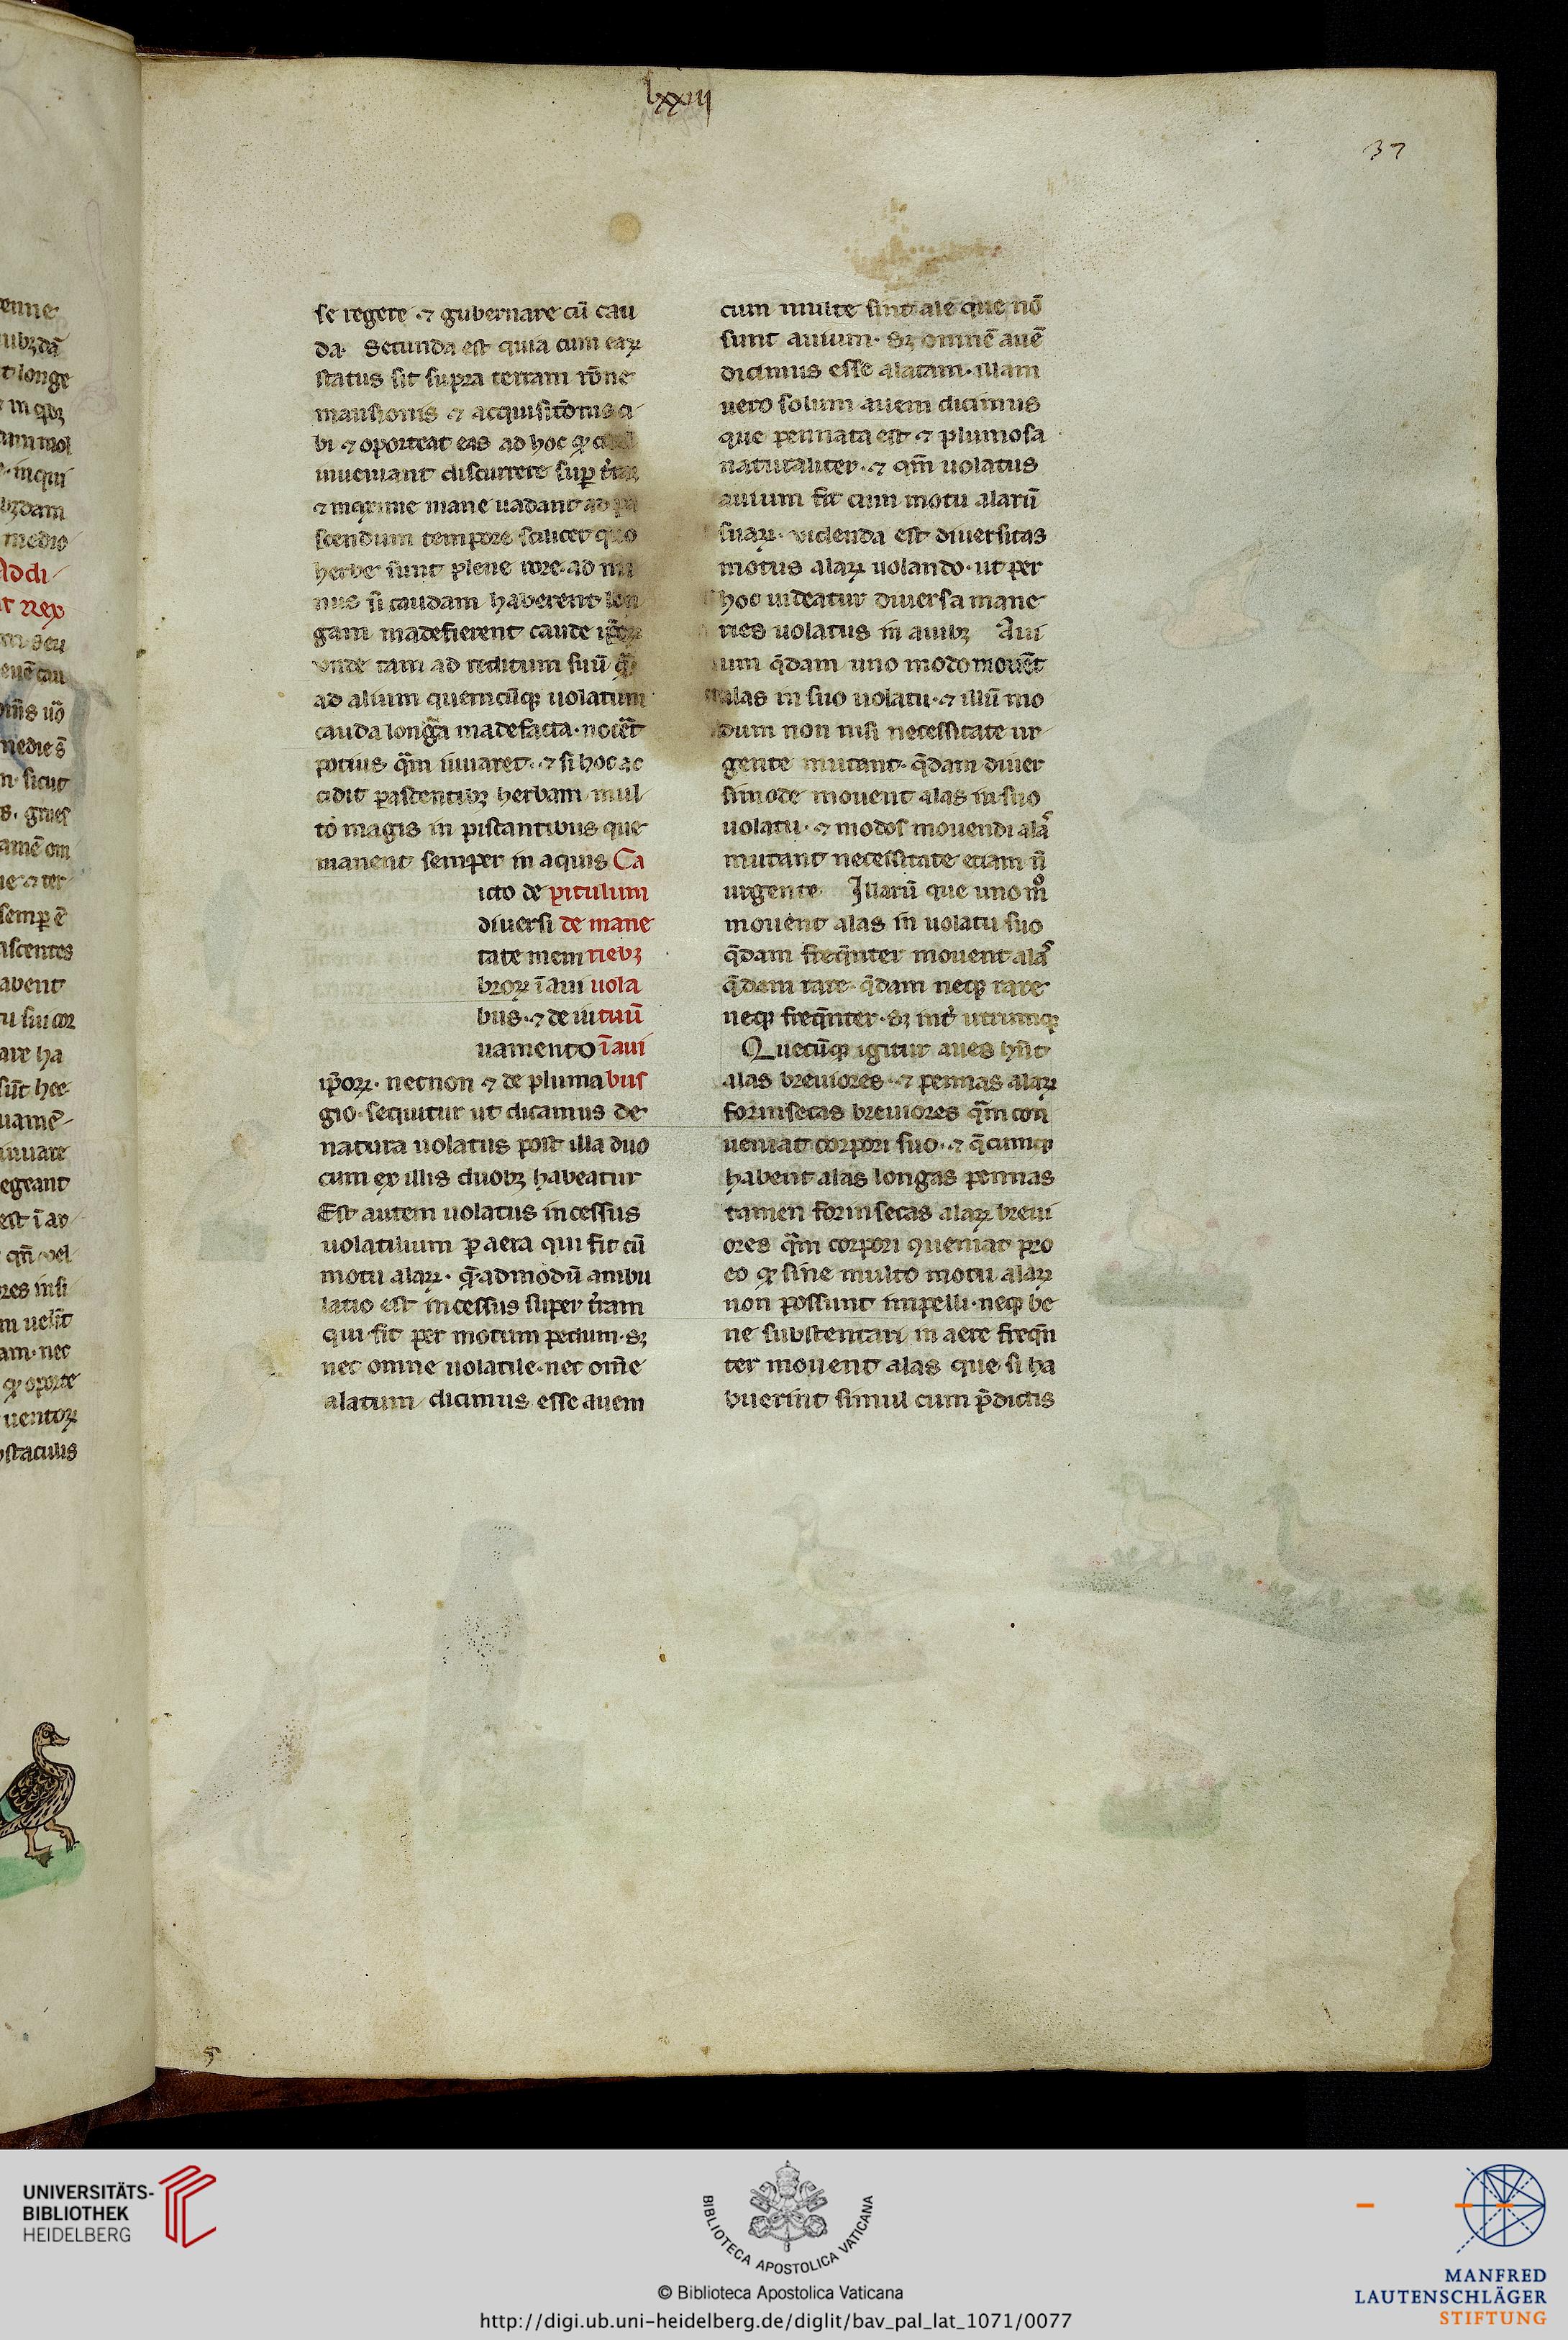 lxxiij
37
se regere ⁊ gubernare cū cau
da. Secunda est quia cum eaꝝ
status sit supra terram rōne
mansionis ⁊ acquisitōnis ci
bi ⁊ oporteat eas ad hoc ꝙ
inueniant discurrere suꝑ
⁊ maxime mane uadant ad pa
scendum tempore scilicet quo
herbe sunt plene rore. ad mi
nus si caudam haberent lon
gam madefierent caude ip̄oꝝ
vnde tam ad reditum suū q̄
ad alium quemcūqꝫ uolatum
cauda longa madefacta. nocēt
potius q̄m iuuaret. ⁊ si hoc ac
cidit pascentibꝫ herbam mul
to magis in piscantibus que
manent semper in aquis Ca
icto de pitulum
diuersi de mane
tate mem riebꝫ
broꝝ ī aui uola
bus. ⁊ de iu tuū
uamento ī aui
ip̄oꝝ. necnon ⁊ de pluma bus
gio. sequitur ut dicamus de
natura uolatus post illa duo
cum ex illis duobꝫ habeatur
Est autem uolatus incessus
uolatilium ꝑ aera qui fit cū
motu alaꝝ. q̄admodū ambu
latio est incessus super t̄ram
qui fit per motum pedum. sꝫ
nec omne uolatile. nec om̄e
alatum dicimus esse auem
cum multe sint ale que nō
sunt auium. sꝫ omnē auē
dicimus esse alatam. illam
uero solum auem dicimus
que pennata est ⁊ plumosa
naturaliter. ⁊ qm̄ uolatus
auium fit cum motu alarū
suaꝝ. videnda est diuersitas
motus alaꝝ uolando. ut per
hoc uideatur diuersa mane
ries uolatus in auibꝫ Aui
um q̄dam uno modo mouēt
alas in suo uolatu. ⁊ illū mo
dum non nisi necessitate ur
gente mutant. q̄dam diuer
simode mouent alas in suo
uolatu. ⁊ modos mouendi alas
mutant necessitate etiam n̄
urgente Illarū que uno mº
mouent alas in uolatu suo
q̄dam freq̄nter mouent alas
q̄dam rare. q̄dam neqꝫ rare
neqꝫ freq̄nter. sꝫ int̄ utrumqꝫ
Quecūqꝫ igitur aues hn̄t
alas breuiores. ⁊ pennas alaꝝ
forinsecas breuiores q̄m con
ueniat corpori suo. ⁊ q̄cumqꝫ
habent alas longas pennas
tamen forinsecas alaꝝ breui
ores q̄m corpori ꝯueniat pro
eo ꝙ sine multo motu alaꝝ
non possunt impelli. neqꝫ be
ne substentari in aere freq̄n
ter mouent alas que si ha
buerint simul cum p̄dictis
UNIVERSITÄTS-
BIBLIOTHEK
HEIDELBERG
BIBLIOTECA APOSTOLICA VATICANA
© Biblioteca Apostolica Vaticana
http://digi.ub.uni-heidelberg.de/diglit/bav_pal_lat_1071/0077
MANFRED
LAUTENSCHLÄGER
STIFTUNG